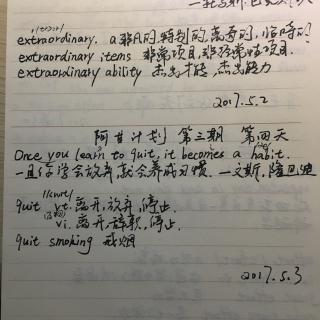 extraordinary. a 非凡的,特别的,离奇的,临时的
extraordinary items 非常项目,非经常性项目.
extraordinary ability 杰出才能 杰出能力
2017.5.2
阿甘计划 第三期 第四天
Once you learn to quit, it becomes a habit.
一旦你学会放弃,就会养成习惯. 一文斯,隆巴迪
/kwɪt/
quit vt. 离开,放弃,停止.
vi. 离开,辞职,停止.
quit smoking 戒烟
2017.5.3